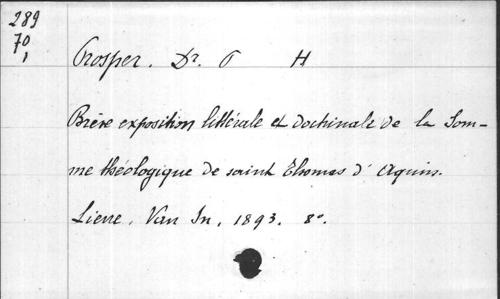 289
70
1
Prosper. Dr. P H
Brève exposition littérale et doctrinale de la Som-
me théologique de saint Thomas d'Aquin.
Lierre, Van In, 1893. 8°.